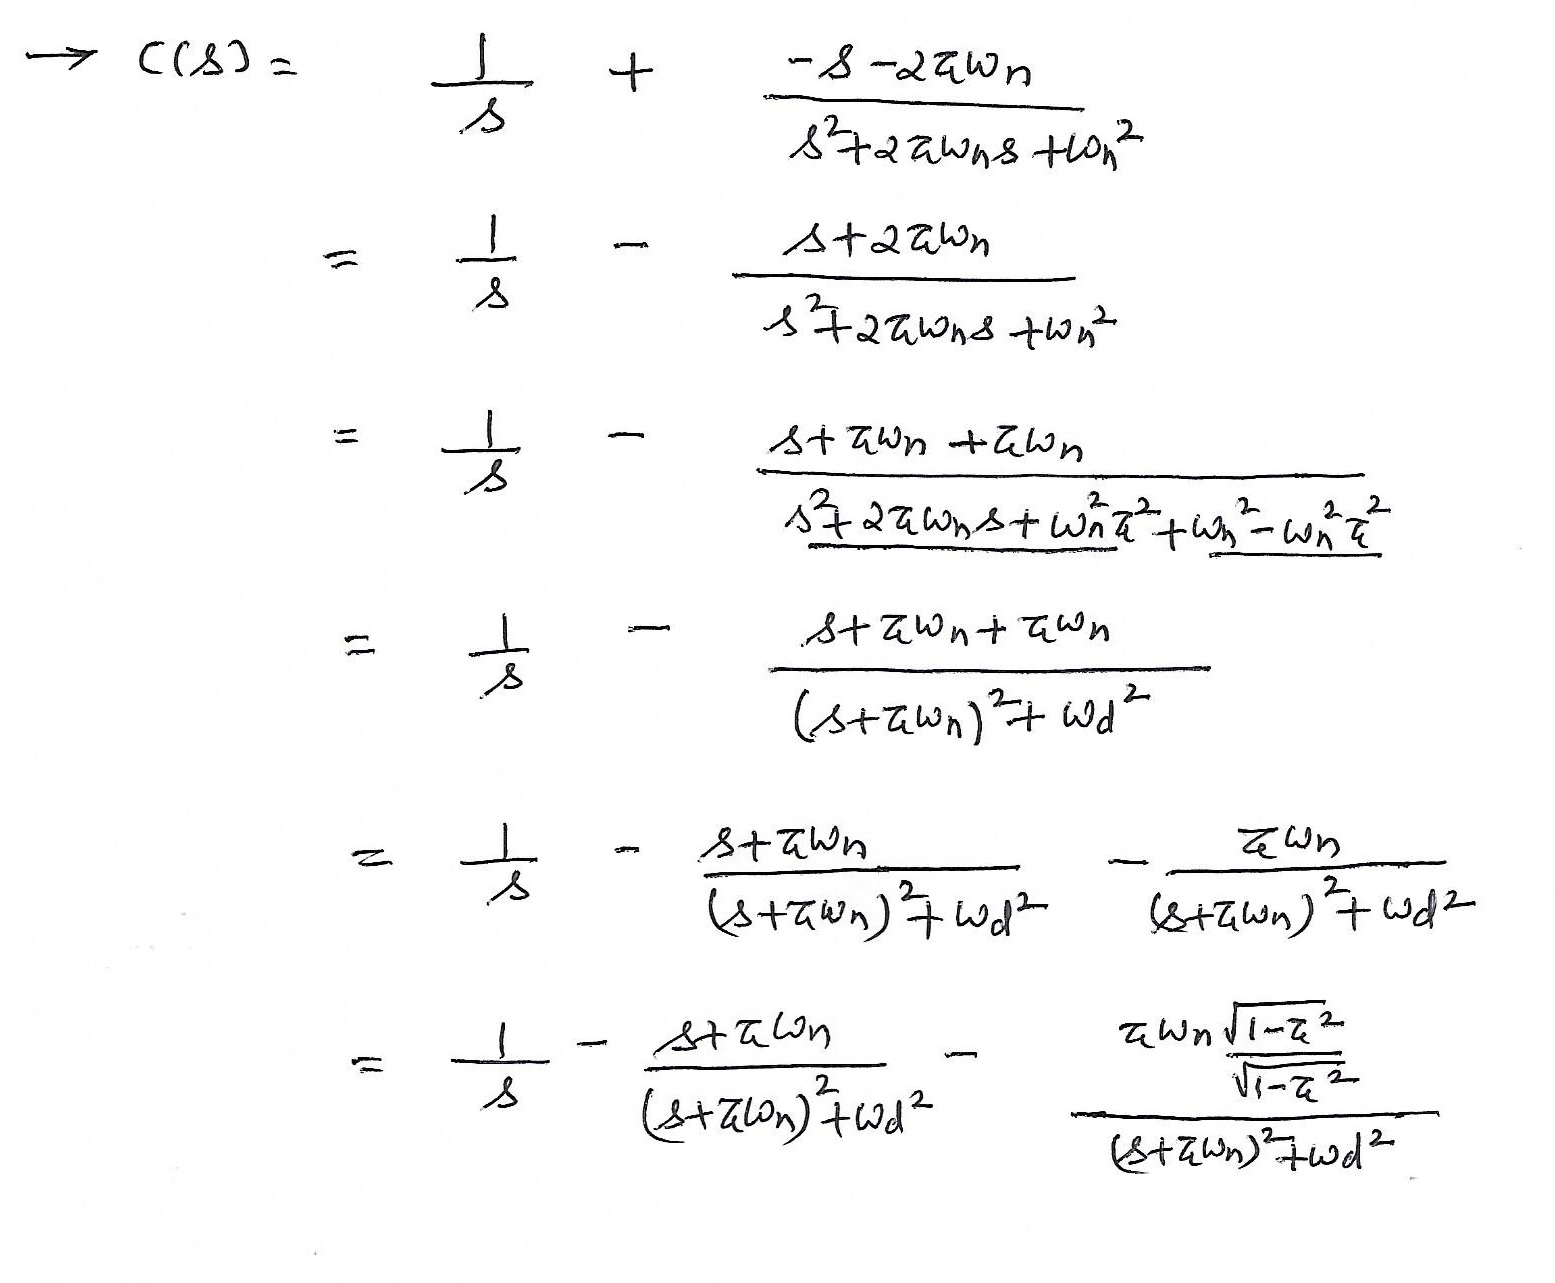 → C(s) = 1/s + (-s - 2ζωn)/(s² + 2ζωn s + ωn²)
= 1/s - (s + 2ζωn)/(s² + 2ζωn s + ωn²)
= 1/s - (s + ζωn + ζωn)/(s² + 2ζωn s + ωn²ζ² + ωn² - ωn²ζ²)
= 1/s - (s + ζωn + ζωn)/((s + ζωn)² + ωd²)
= 1/s - (s + ζωn)/((s + ζωn)² + ωd²) - ζωn/((s + ζωn)² + ωd²)
= 1/s - (s + ζωn)/((s + ζωn)² + ωd²) - (ζωn √(1-ζ²)/√(1-ζ²))/((s + ζωn)² + ωd²)